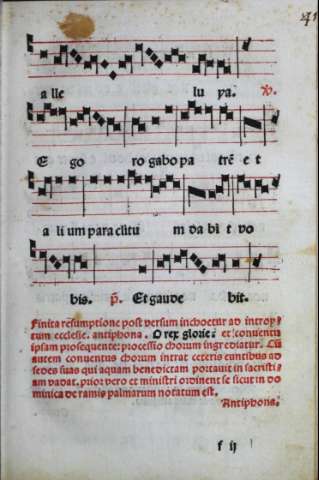 41
a lle lu ya. ℣.
E go ro gabo pa trē e t
a li um para clitu m dabit vo
bis. p̄. Et gaude bit.
Finita resumptione post versum inchoetur ad introy-
tum ecclesie. antiphona. O rex glorie: et conventu
ipsam prosequente: processio chorum ingrediatur. Cū
autem conventus chorum intrat ceteris euntibus ad
sedes suas qui aquam benedictam portavit in sacristi-
am vadat. prior vero et ministri ordinent se sicut in do
minica de ramis palmarum notatum est.
Antiphona.
f ij